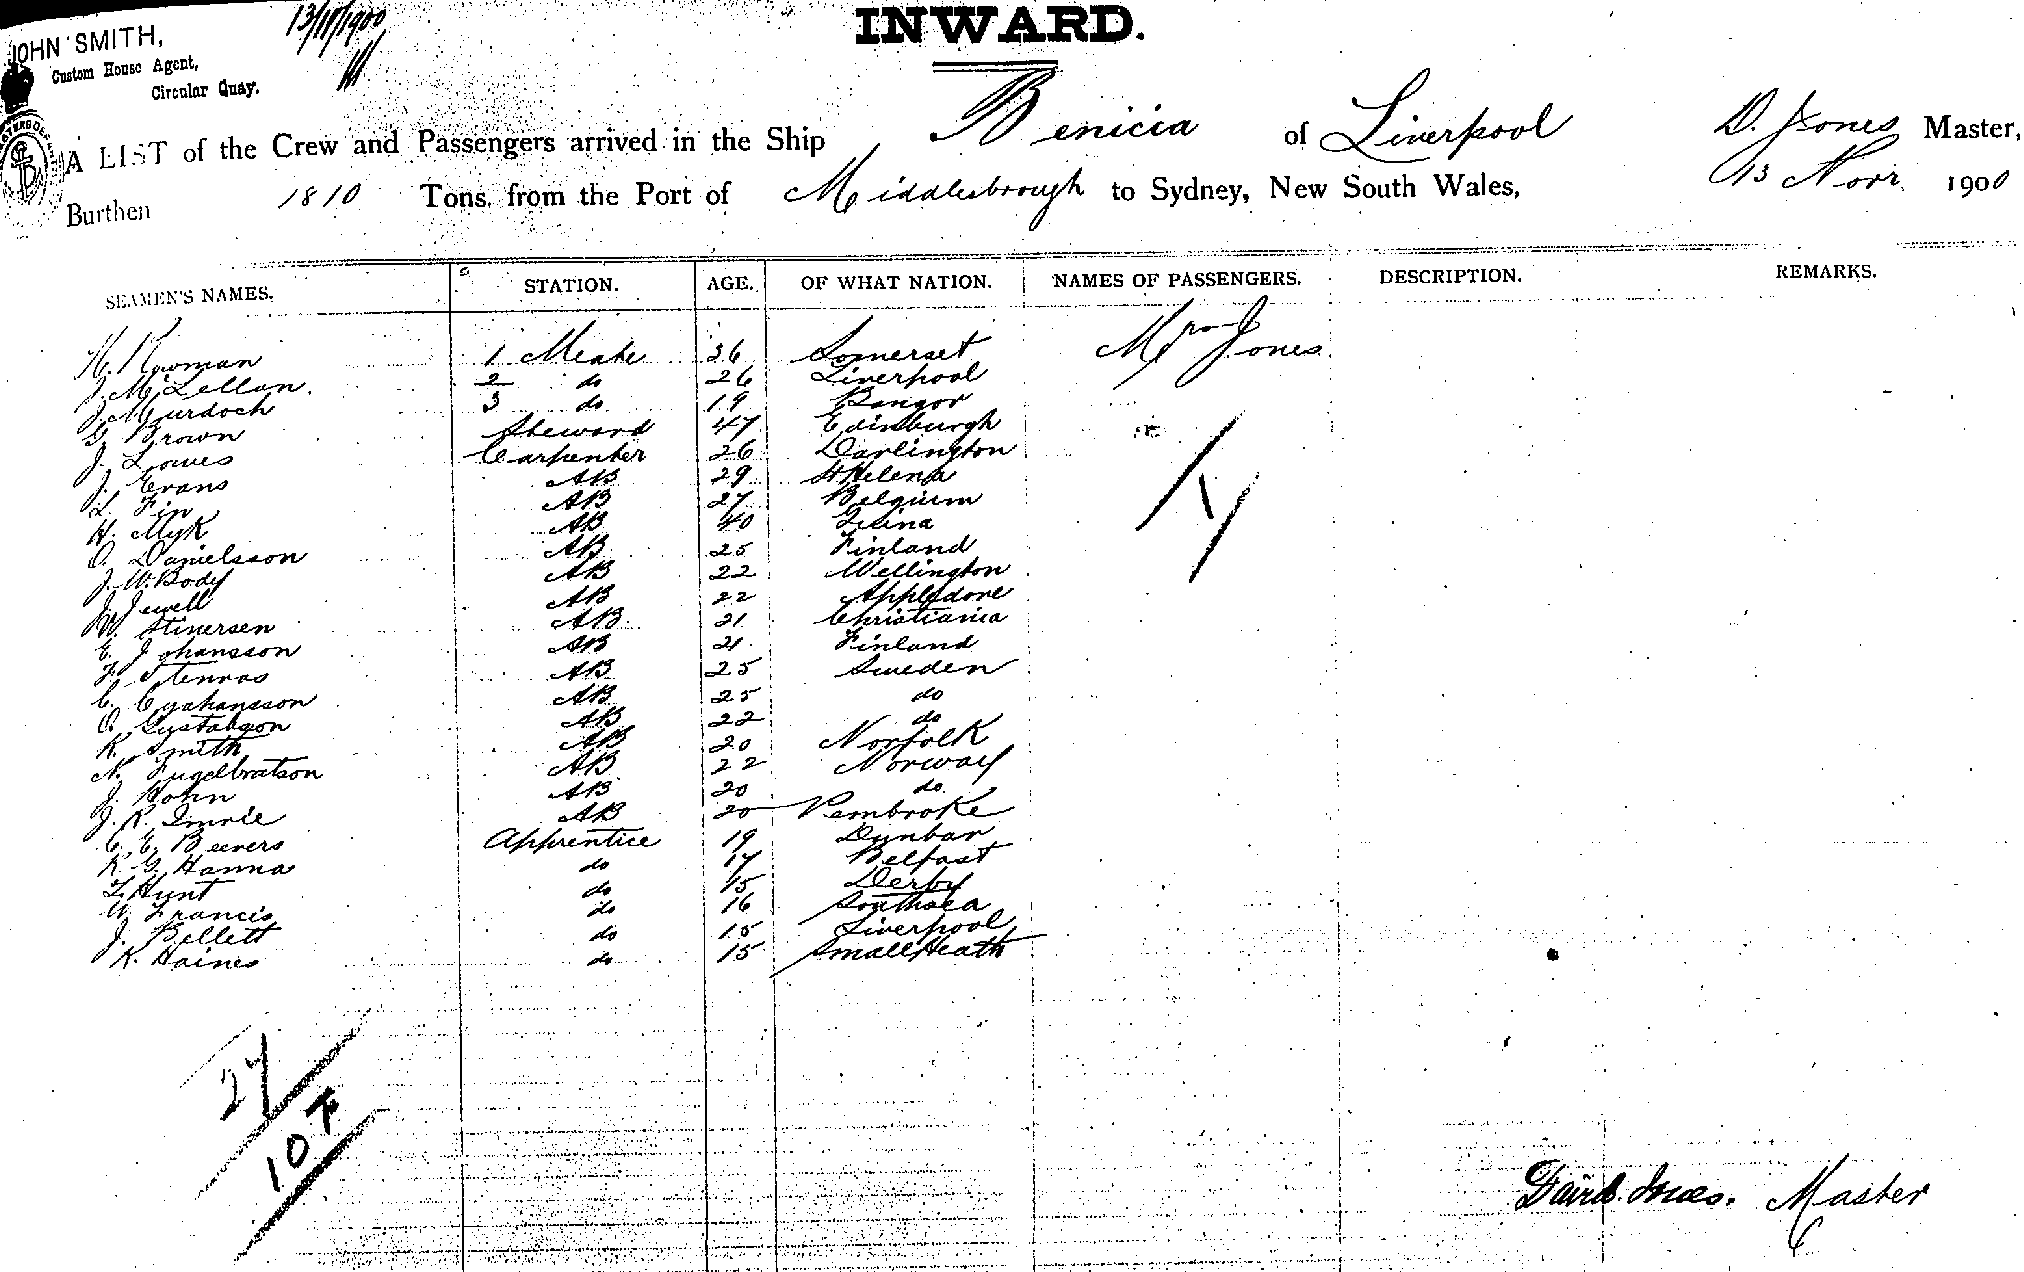 INWARD.
13/11/1900
JOHN SMITH,
Custom House Agent,
Circular Quay.
A LIST of the Crew and Passengers arrived in the Ship Benicia of Liverpool D. Jones Master,
Burthen 1810 Tons, from the Port of Middlesbrough to Sydney, New South Wales, 13 Novr 1900
SEAMEN'S NAMES. STATION. AGE. OF WHAT NATION. NAMES OF PASSENGERS. DESCRIPTION. REMARKS.
H. Nowman 1 Mate 36 Somerset Mrs Jones
J. McLellan. 2 do 26 Liverpool
J. Murdoch 3 do 19 Bangor
G. Brown Steward 47 Edinburgh
J. Lowes Carpenter 26 Darlington
J. Evans AB 29 St Helena
L. Fin AB 27 Belgium
H. Myk AB 40
O. Danielsson AB 25 Finland
J. W. Body AB 22 Wellington
J. Jewell AB 22 Appledore
W. Stinersen AB 21 Christiania
E. Johansson AB 21 Finland
F. Stenros AB 25 Sweden
C. AB 25 do
O. AB 22 do
R. Smith AB 20 Norfolk
N. AB 22 Norway
J. Hohn AB 20 do
J. R. Imrie AB 20 Pembroke
C. E. Beevers Apprentice 19 Dunbar
R. G. Hanna do 17 Belfast
L. Hunt do 15 Derby
W. Francis do 16 Southsea
J. Bellett do 15 Liverpool
R. Haines do 15 Small Heath
27
10
David Jones. Master